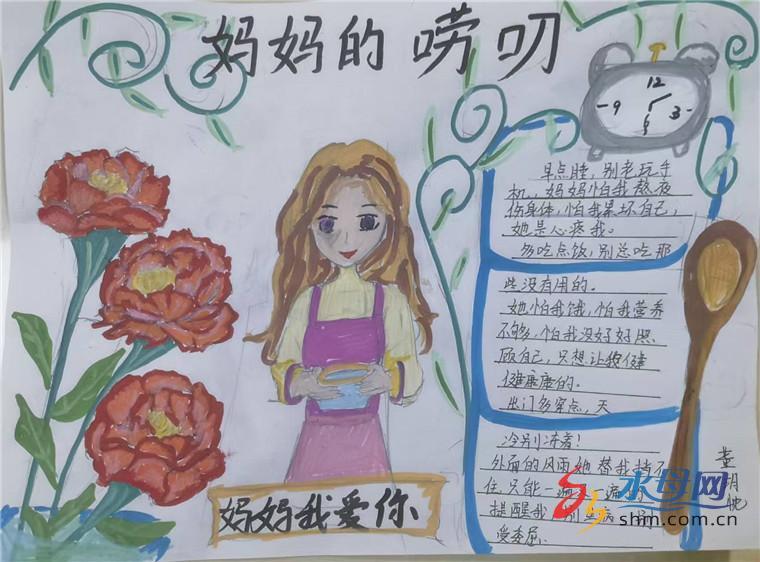 妈妈的唠叨
12
9
3
6
早点睡,别老玩手
机。妈妈怕我熬夜
伤身体,怕我累坏自己,
她是心疼我。
多吃点饭,别总吃那
些没有用的。
她怕我饿,怕我营养
不够,怕我没好好照
顾自己,只想让我健
健康康的。
出门多穿点,天
冷别冻着!
外面的风雨她替我挡不
住,只能一遍 遍
提醒我 别 病
受委屈。
妈妈我爱你
水母网
shm.com.cn